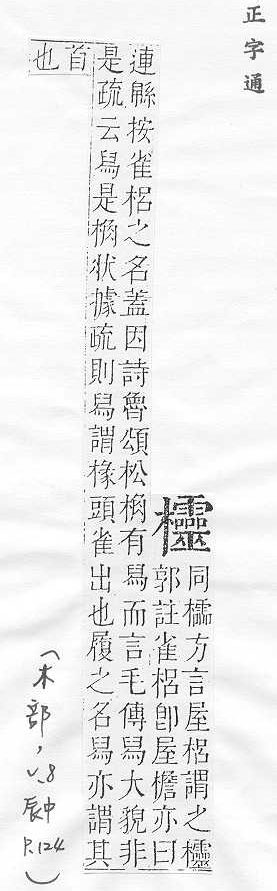 正字通
欞
同櫺方言屋梠謂之欞
郭註雀梠卽屋檐亦曰
連緜按雀梠之名蓋因詩魯頌松桷有舄而言毛傳舄大貌非
是疏云舄是桷狀據疏則舄謂椽頭雀出也履之名舄亦謂其
首
也
(木部, v.8 辰中 P.124)